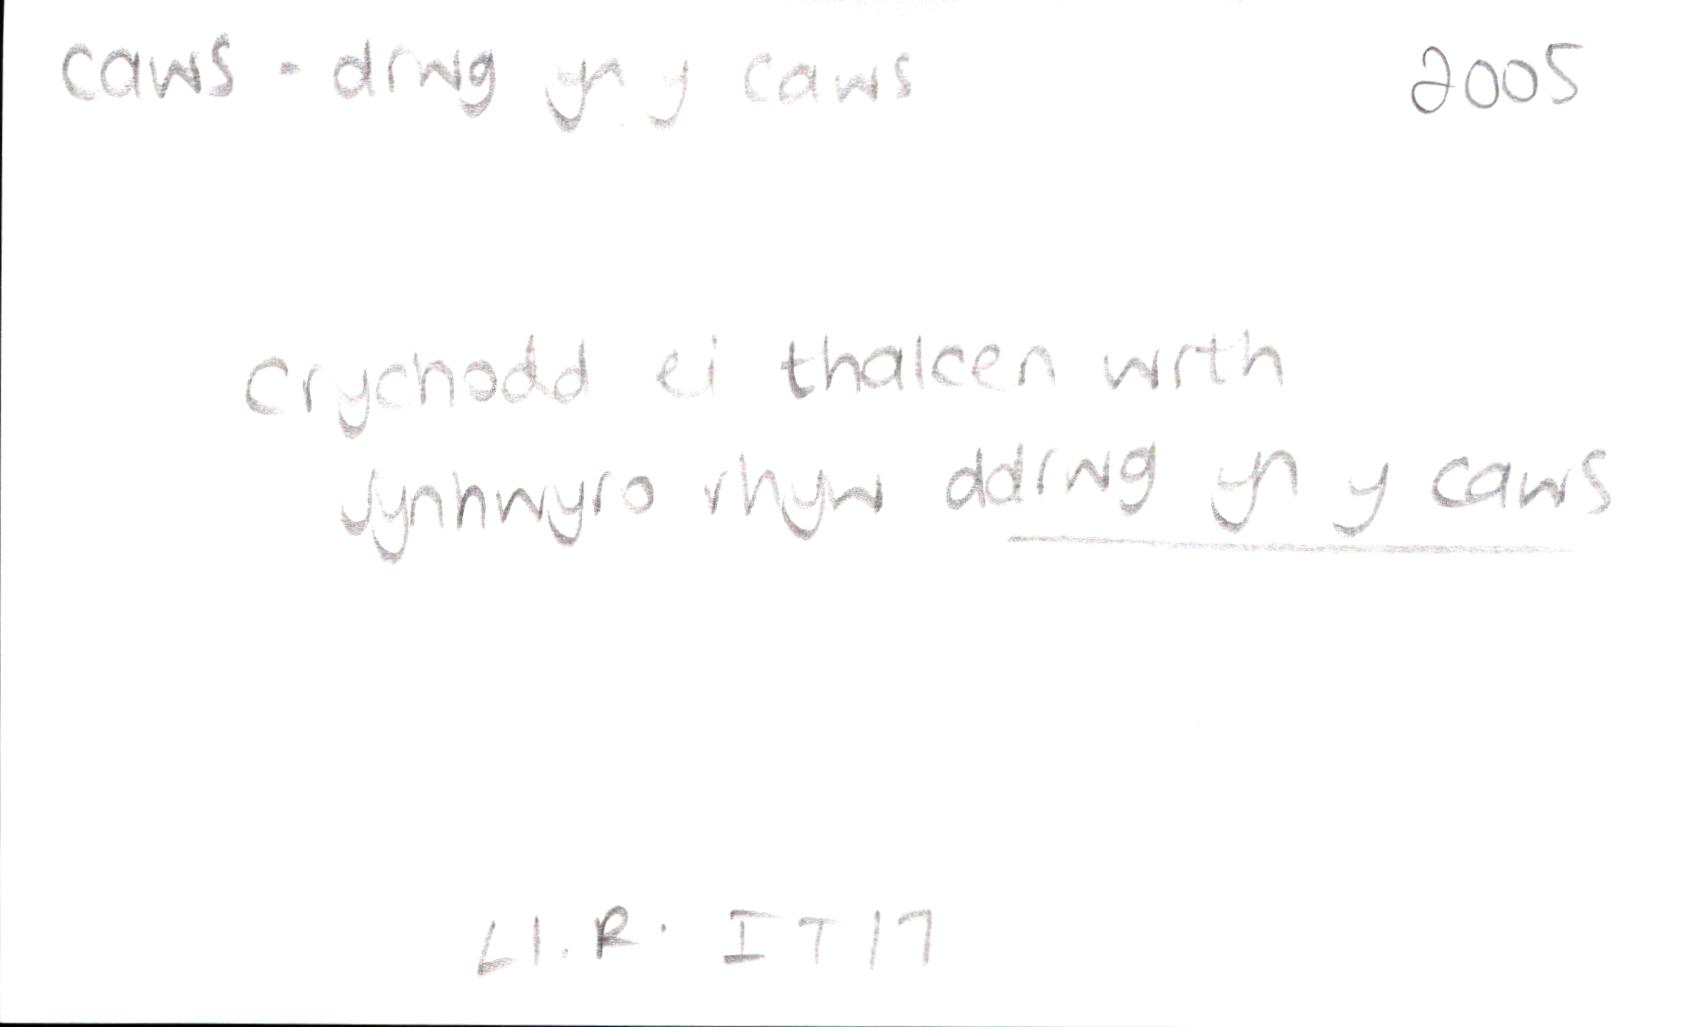 caws - drwg yn y caws 2005
Crychodd ei thalcen wrth
synhwyro rhyw ddrwg yn y caws
Ll.R. IT 17